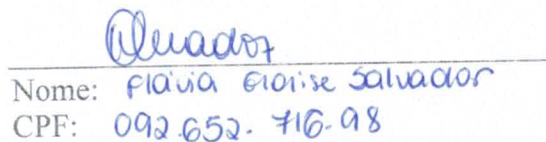 Nome: Flávia Eloise Salvador
CPF: 092.652.716.98